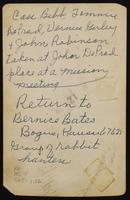 Case Bibb Jimmie
DePrad, Vernice Gurley
& John Robinson
taken at John DePrad
place at a mission
meeting
Return to
Bernice Bates
Bogue, Kansas 67625
Group of rabbit
hunters